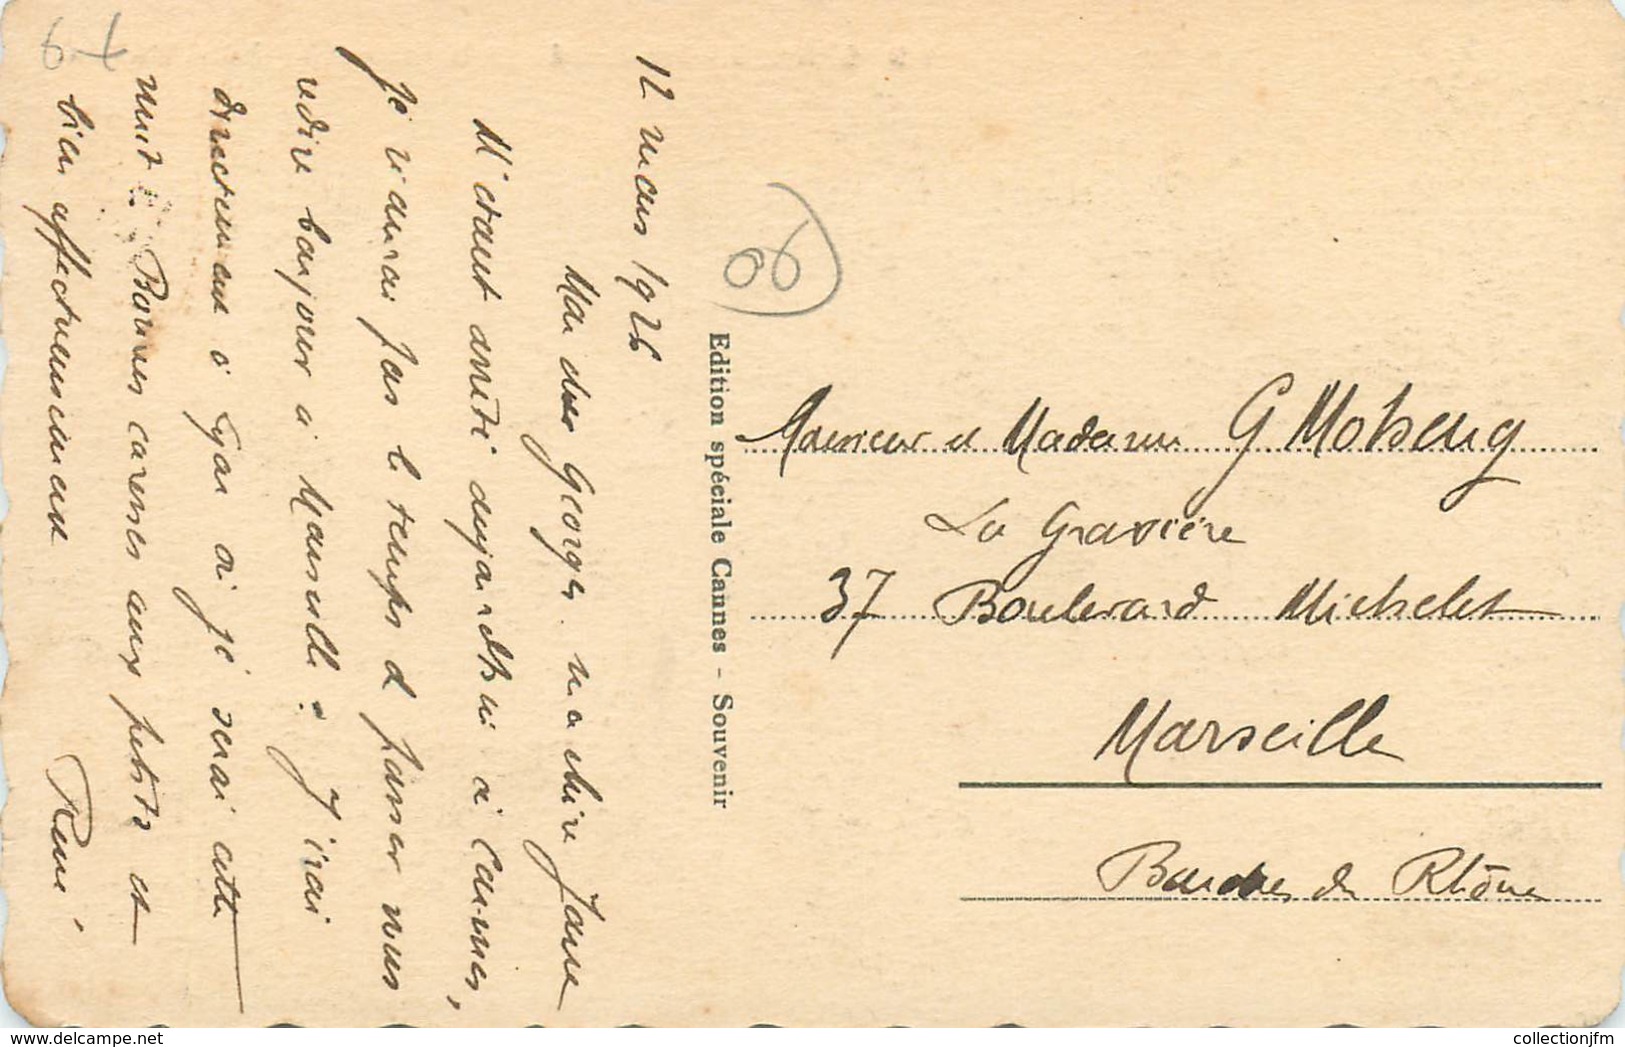 12 mars 1926
Mon cher Georges, ma chère Jane
M'étant arrêté aujourd'hui à Cannes,
je n'aurai pas le temps d passer vous
dire bonjour à Marseille. J'irai
directement à Lyon où je serai cette
nuit. Bonnes caresses aux petits et
bien affectueusement
René
Edition spéciale Cannes - Souvenir
Monsieur et Madame G.
La Gravière
37 Boulevard Michelet
Marseille
Bouches du Rhône
06
64
collectionjfm